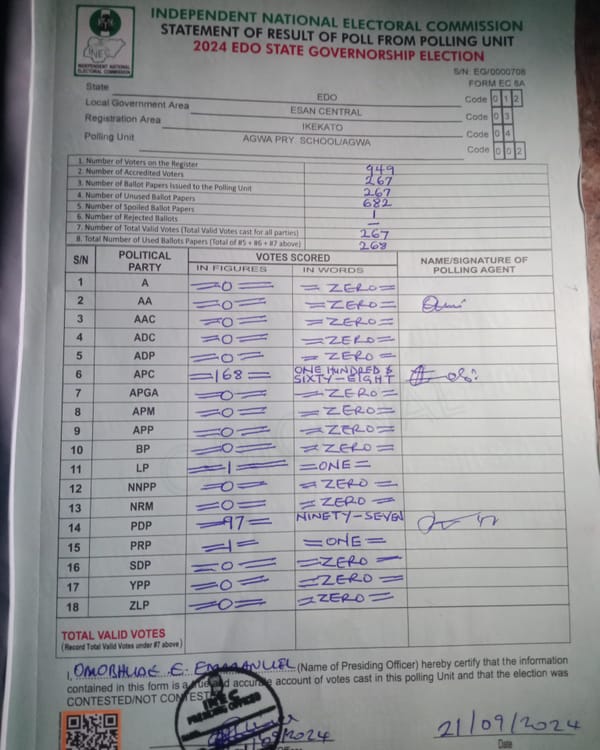 INDEPENDENT NATIONAL ELECTORAL COMMISSION
STATEMENT OF RESULT OF POLL FROM POLLING UNIT
2024 EDO STATE GOVERNORSHIP ELECTION
INEC
INDEPENDENT NATIONAL
ELECTORAL COMMISSION
S/N: EG/0000708
FORM EC 8A
State EDO Code 0 1 2
Local Government Area ESAN CENTRAL Code 0 3
Registration Area IKEKATO Code 0 4
Polling Unit AGWA PRY SCHOOL/AGWA Code 0 0 2
1. Number of Voters on the Register 949
2. Number of Accredited Voters 267
3. Number of Ballot Papers Issued to the Polling Unit 267
4. Number of Unused Ballot Papers 682
5. Number of Spoiled Ballot Papers 1
6. Number of Rejected Ballots –
7. Number of Total Valid Votes (Total Valid Votes cast for all parties) 267
8. Total Number of Used Ballots Papers (Total of #5 + #6 + #7 above) 268
S/N POLITICAL PARTY VOTES SCORED NAME/SIGNATURE OF POLLING AGENT
IN FIGURES IN WORDS
1 A =0= =ZERO=
2 AA =0= =ZERO=
3 AAC =0= =ZERO=
4 ADC =0= =ZERO=
5 ADP =0= =ZERO=
6 APC =168= ONE HUNDRED & SIXTY-EIGHT
7 APGA =0= =ZERO=
8 APM =0= =ZERO=
9 APP =0= =ZERO=
10 BP =0= =ZERO=
11 LP =1= =ONE=
12 NNPP =0= =ZERO=
13 NRM =0= =ZERO=
14 PDP =97= NINETY-SEVEN
15 PRP =1= =ONE=
16 SDP =0= =ZERO=
17 YPP =0= =ZERO=
18 ZLP =0= =ZERO=
TOTAL VALID VOTES
(Record Total Valid Votes under #7 above)
I, E. EMMANUEL (Name of Presiding Officer) hereby certify that the information
contained in this form is a true and accurate account of votes cast in this polling Unit and that the election was
CONTESTED/NOT CONTESTED
INEC
PRESIDING OFFICER
21/09/2024
Date